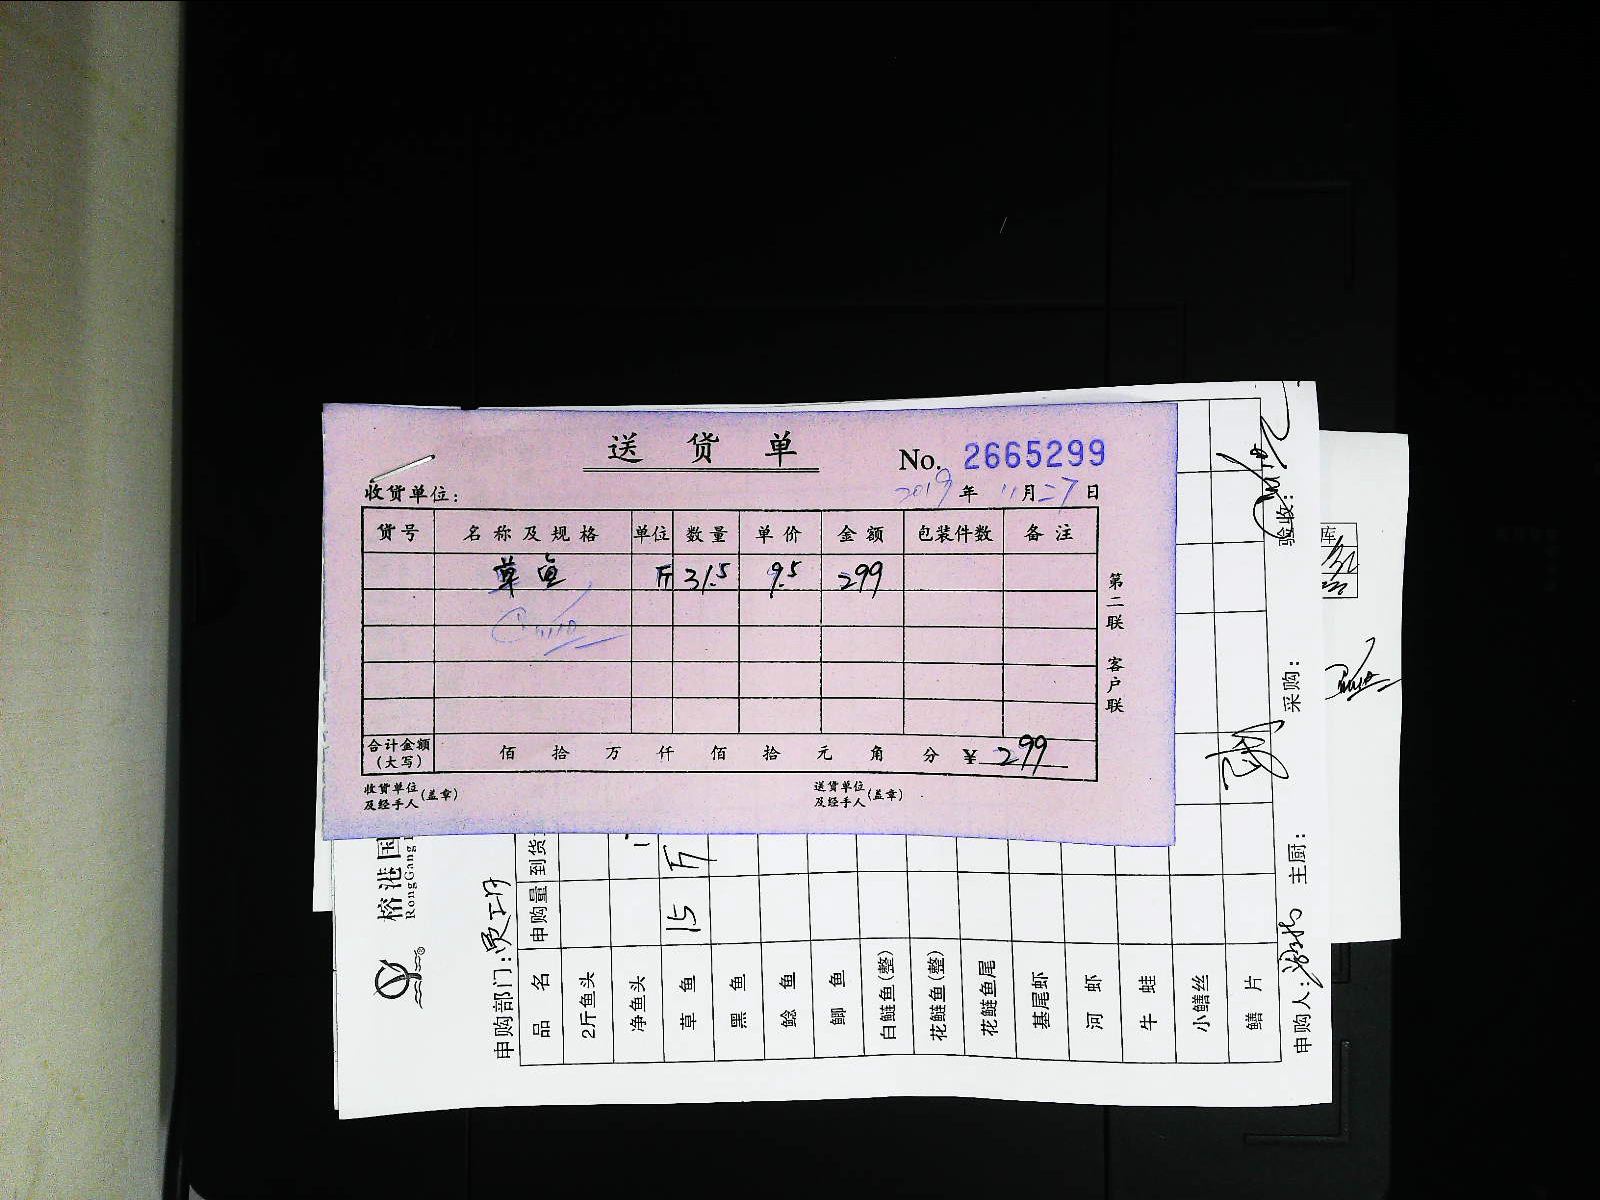 送 货 单
No. 2665299
收货单位: 2019 年 11 月 27 日
货号 名称及规格 单位 数量 单价 金额 包装件数 备注
草鱼 斤 31.5 9.5 299
合计金额(大写) 佰 拾 万 仟 佰 拾 元 角 分 ¥ 299
收货单位及经手人(盖章) 送货单位及经手人(盖章)
第二联 客户联
榕港国
RongGang
申购部门:
品名 申购量 到货
2斤鱼头
净鱼头
草鱼 15 斤
黑鱼
鲶鱼
鲫鱼
白鲢鱼(整)
花鲢鱼(整)
花鲢鱼尾
基尾虾
河虾
牛蛙
小鳝丝
鳝片
申购人: 主厨: 采购: 验收:
库